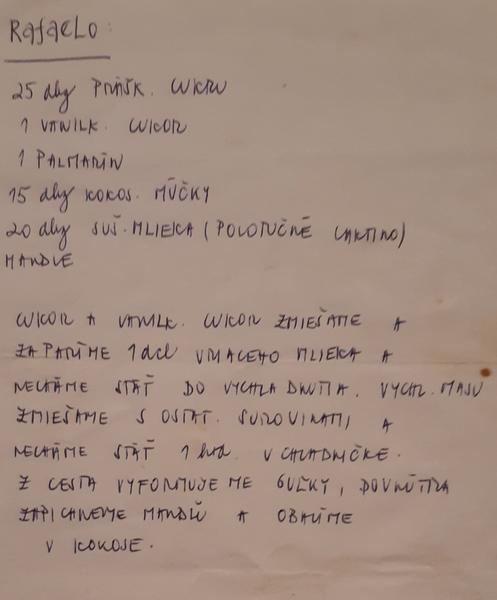 Rafaelo:
25 dkg PRÁŠK. CUKRU
1 VANILK. CUKOR
1 PALMARÍN
15 dkg KOKOS. MÚČKY
20 dkg SUŠ. MLIEKA (POLOTUČNÉ LAKTINO)
MANDLE
CUKOR A VANILK. CUKOR ZMIEŠAME A
ZAPARÍME 1 dcl VRIACEHO MLIEKA A
NECHÁME STÁŤ DO VYCHLADNUTIA. VYCHL. MASU
ZMIEŠAME S OSTAT. SUROVINAMI A
NECHÁME STÁŤ 1 hod. V CHLADNIČKE.
Z CESTA VYFORMUJEME GUĽKY, DOVNÚTRA
ZAPICHNEME MANDĽU A OBALÍME
V KOKOSE.